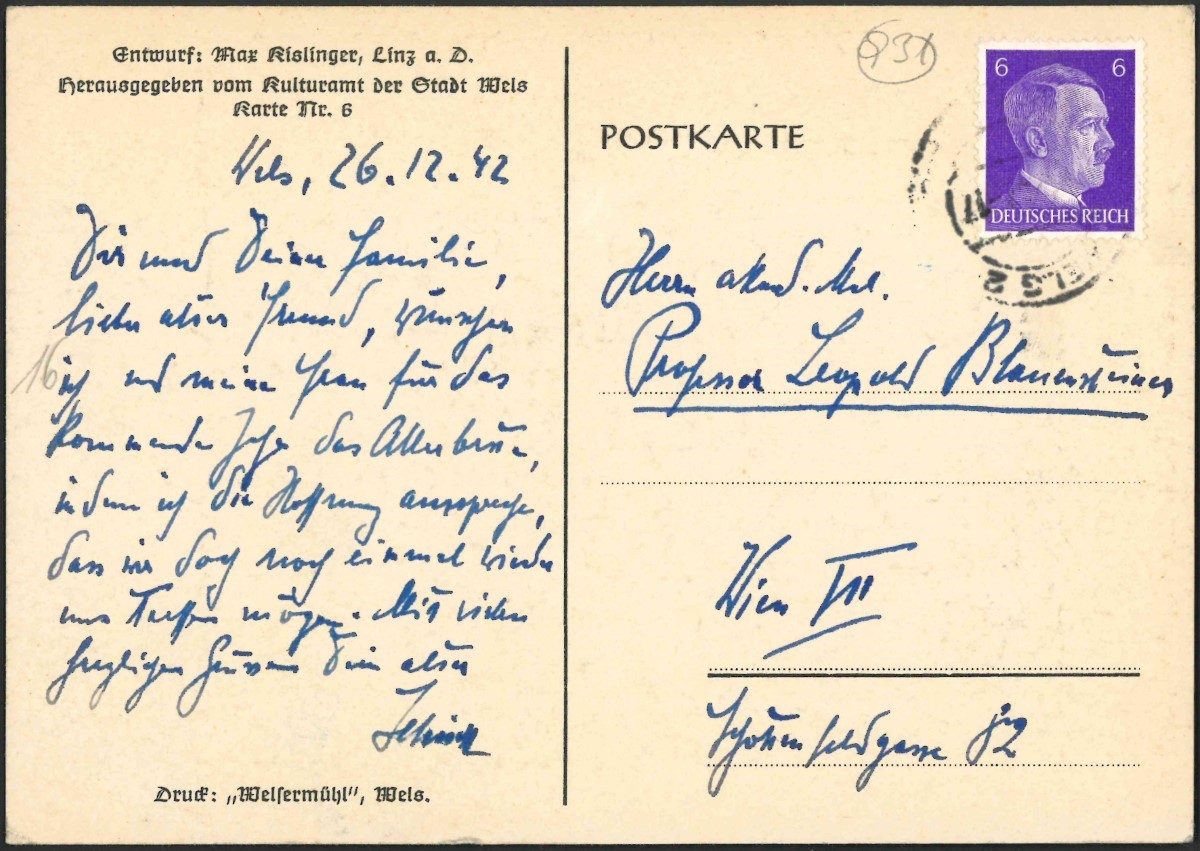 Entwurf: Max Kislinger, Linz a. D.
Herausgegeben vom Kulturamt der Stadt Wels
Karte Nr. 6
Wels, 26.12.42
Dir und Deiner Familie,
lieber alter Freund, wünschen
ich und meine Frau für das
kommende Jahr das Allerbeste,
indem ich die Hoffnung ausspreche,
dass wir doch noch einmal wieder
uns treffen mögen. Mit vielen
herzlichen Grüssen Dein alter
Druck: „Welsermühl", Wels.
16
931
POSTKARTE
6 6
DEUTSCHES REICH
WELS 2
Herrn akad. Mal.
Professor Leopold Blauensteiner
Wien VII
Schottenfeldgasse 82